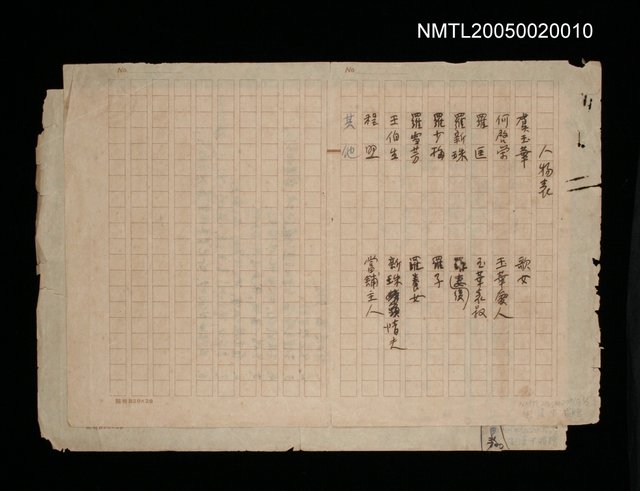 NMTL20050020010
No.
No.
人物表
虞玉華 歌女
何啓榮 玉華愛人
羅匡 玉華表叔
羅新珠
羅少梅 羅子
羅雪芳 羅養女
王伯生 新珠情夫
程四 當鋪主人
其他